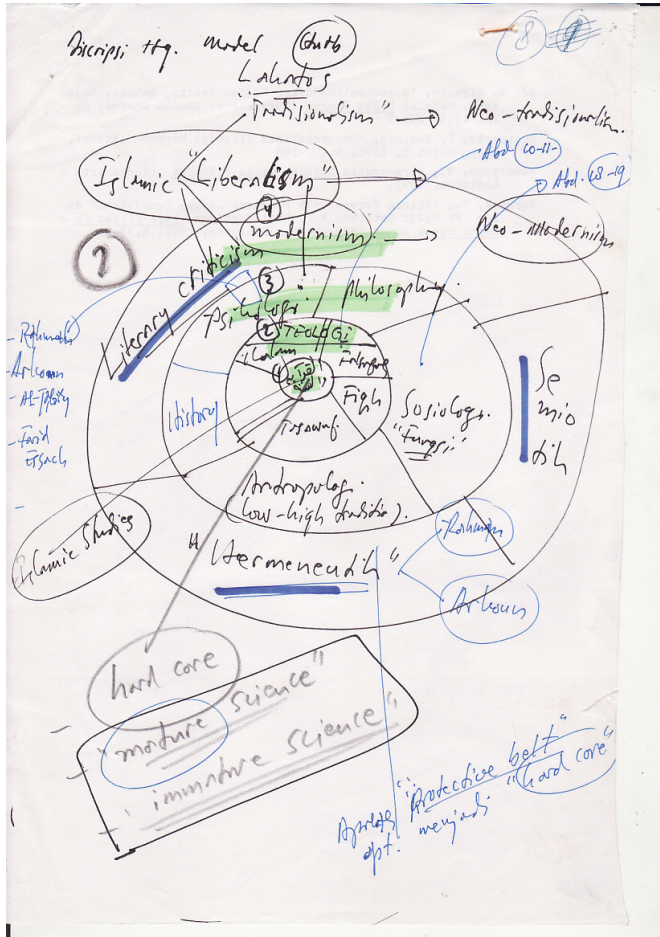 Discripsi Hg. model
Lakatos
8 9
"Tradisionalism" → Neo-tradisionalism.
Abd. 10-11-
Abd. 18-19
Islamic "Liberalism"
4
modernism. → Neo-Modernism
?
Literary criticism
3
Psikologi Philosophy.
2 TEOLOGI
Kalam Falsafah
1
Fiqh
Tasawuf.
History
Sosiologi.
"Fungsi"
Semiotik
Antropologi
(low-high tradition).
- Rahman
- Arkoun
- Al-Jabiry
- Farid Essack
-
Islamic Studies
"Hermeneutik"
Rahman
Arkoun
hard core
- "mature science"
- "immature science"
Apakah "Protective belt"
dpt. menjadi "hard core"